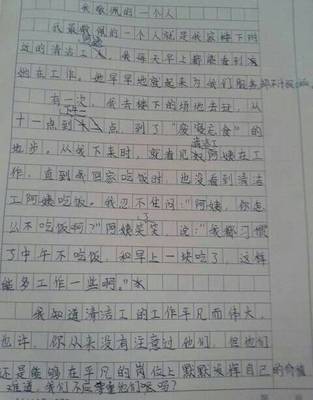 我敬佩的一个人
我最敬佩的一个人就是我家楼下附
近的清洁工阿姨。我每天早上都能看到
她在工作。她早早地就起来为我们服务却不计报酬。
有一次,我去楼下的场地去过,从
十一点到十二点,到了"废寝忘食"的
地步。从我下来时,就看见清洁工阿姨在工
作,直到我回家吃饭时,也没看到清洁
工阿姨吃饭。我忍不住问:"阿姨,你怎
么不吃饭啊?"阿姨笑了笑,说:"我都习惯
了中午不吃饭,和早上一块吃了,这样
能多工作一些啊。"
我知道清洁工的工作平凡而伟大,
也许,你从来没有注意过他们,但他们
还是能够在平凡的岗位上默默发挥自己的价值
难道,我们不应尊重他们吗?